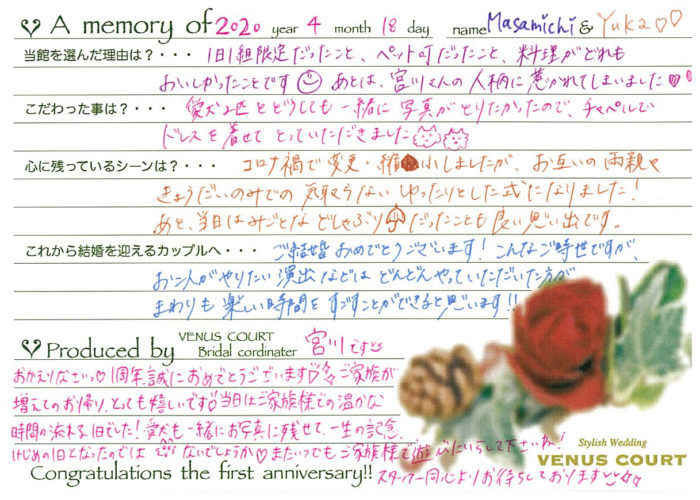 A memory of 2020 year 4 month 18 day name Masamichi & Yuka♡♡
当館を選んだ理由は?・・・ 1日1組限定だったこと、ペット可だったこと、料理がどれも
おいしかったことです あとは、宮川さんの人柄に惹かれてしまいました♥♥
こだわった事は?・・・ 愛犬2匹とどうしても一緒に写真がとりたかったので、チャペルで
ドレスを着せてとっていただきました
心に残っているシーンは?・・・ コロナ禍で変更・縮小しましたが、お互いの両親や
きょうだいのみでの気取らない ゆったりとした式になりました!
あと、当日はみごとなどしゃぶりだったことも良い思い出です。
これから結婚を迎えるカップルへ・・・ ご結婚おめでとうございます!こんなご時世ですが、
お二人がやりたい演出などはどんどんやっていただいた方が
まわりも楽しい時間をすごすことができると思います!!
Produced by VENUS COURT Bridal cordinater 宮川です
おかえりなさいっ♡1周年誠におめでとうございます♡ご家族が
増えてのお帰り、とっても嬉しいです♡当日はご家族様での温かな
時間の流れる1日でした!愛犬も一緒にお写真に残せて、一生の記念、
けじめの1日となったのでは ないでしょうか♡またいつでもご家族様で遊びにいらして下さいね!
Stylish Wedding
VENUS COURT
Congratulations the first anniversary!! スタッフ一同心よりお待ちしております